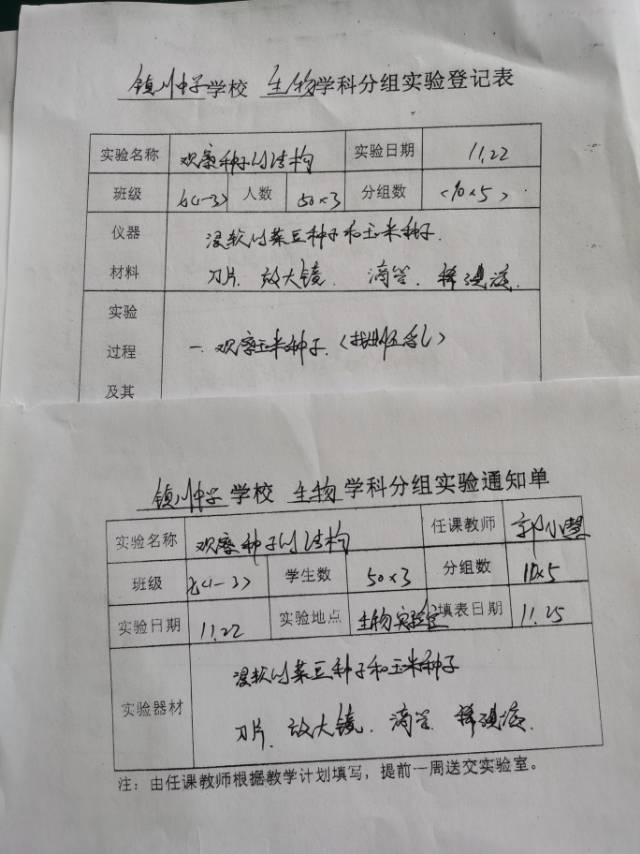 镇川中学学校 生物学科分组实验登记表
实验名称 观察种子的结构 实验日期 11.22
班级 七(1-3) 人数 50×3 分组数 <10×5>
仪器 浸软的菜豆种子和玉米种子.
材料 刀片. 放大镜. 滴管. 稀碘液.
实验
过程 一. 观察玉米种子.
及其
镇川中学学校 生物学科分组实验通知单
实验名称 观察种子的结构 任课教师 郭小慧
班级 七(1-3) 学生数 50×3 分组数 10×5
实验日期 11.22 实验地点 生物实验室 填表日期 11.25
浸软的菜豆种子和玉米种子
实验器材
刀片. 放大镜. 滴管. 稀碘液.
注：由任课教师根据教学计划填写，提前一周送交实验室。